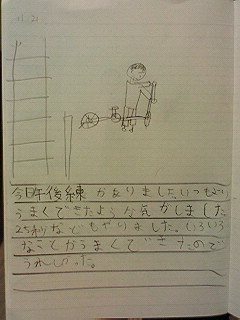 11.21
今日午後練がありました。いつもより
うまくできたような気がしました。
25秒などもやりました。いろいろ
なことがうまくてできたので
うれしかった。